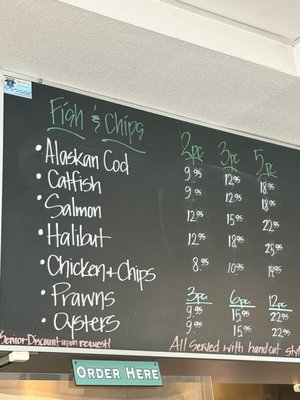 Fish & Chips
2pc 3pc 5pc
• Alaskan Cod 9.95 12.95 18.95
• Catfish 9.95 12.95 18.95
• Salmon 12.95 15.95 22.95
• Halibut 12.95 18.95 25.95
• Chicken + Chips 8.95 10.95 14.95
3pc 6pc 12pc
• Prawns 9.95 15.95 22.95
• Oysters 9.95 15.95 22.95
Senior Discount upon request!
All served with hand cut
ORDER HERE